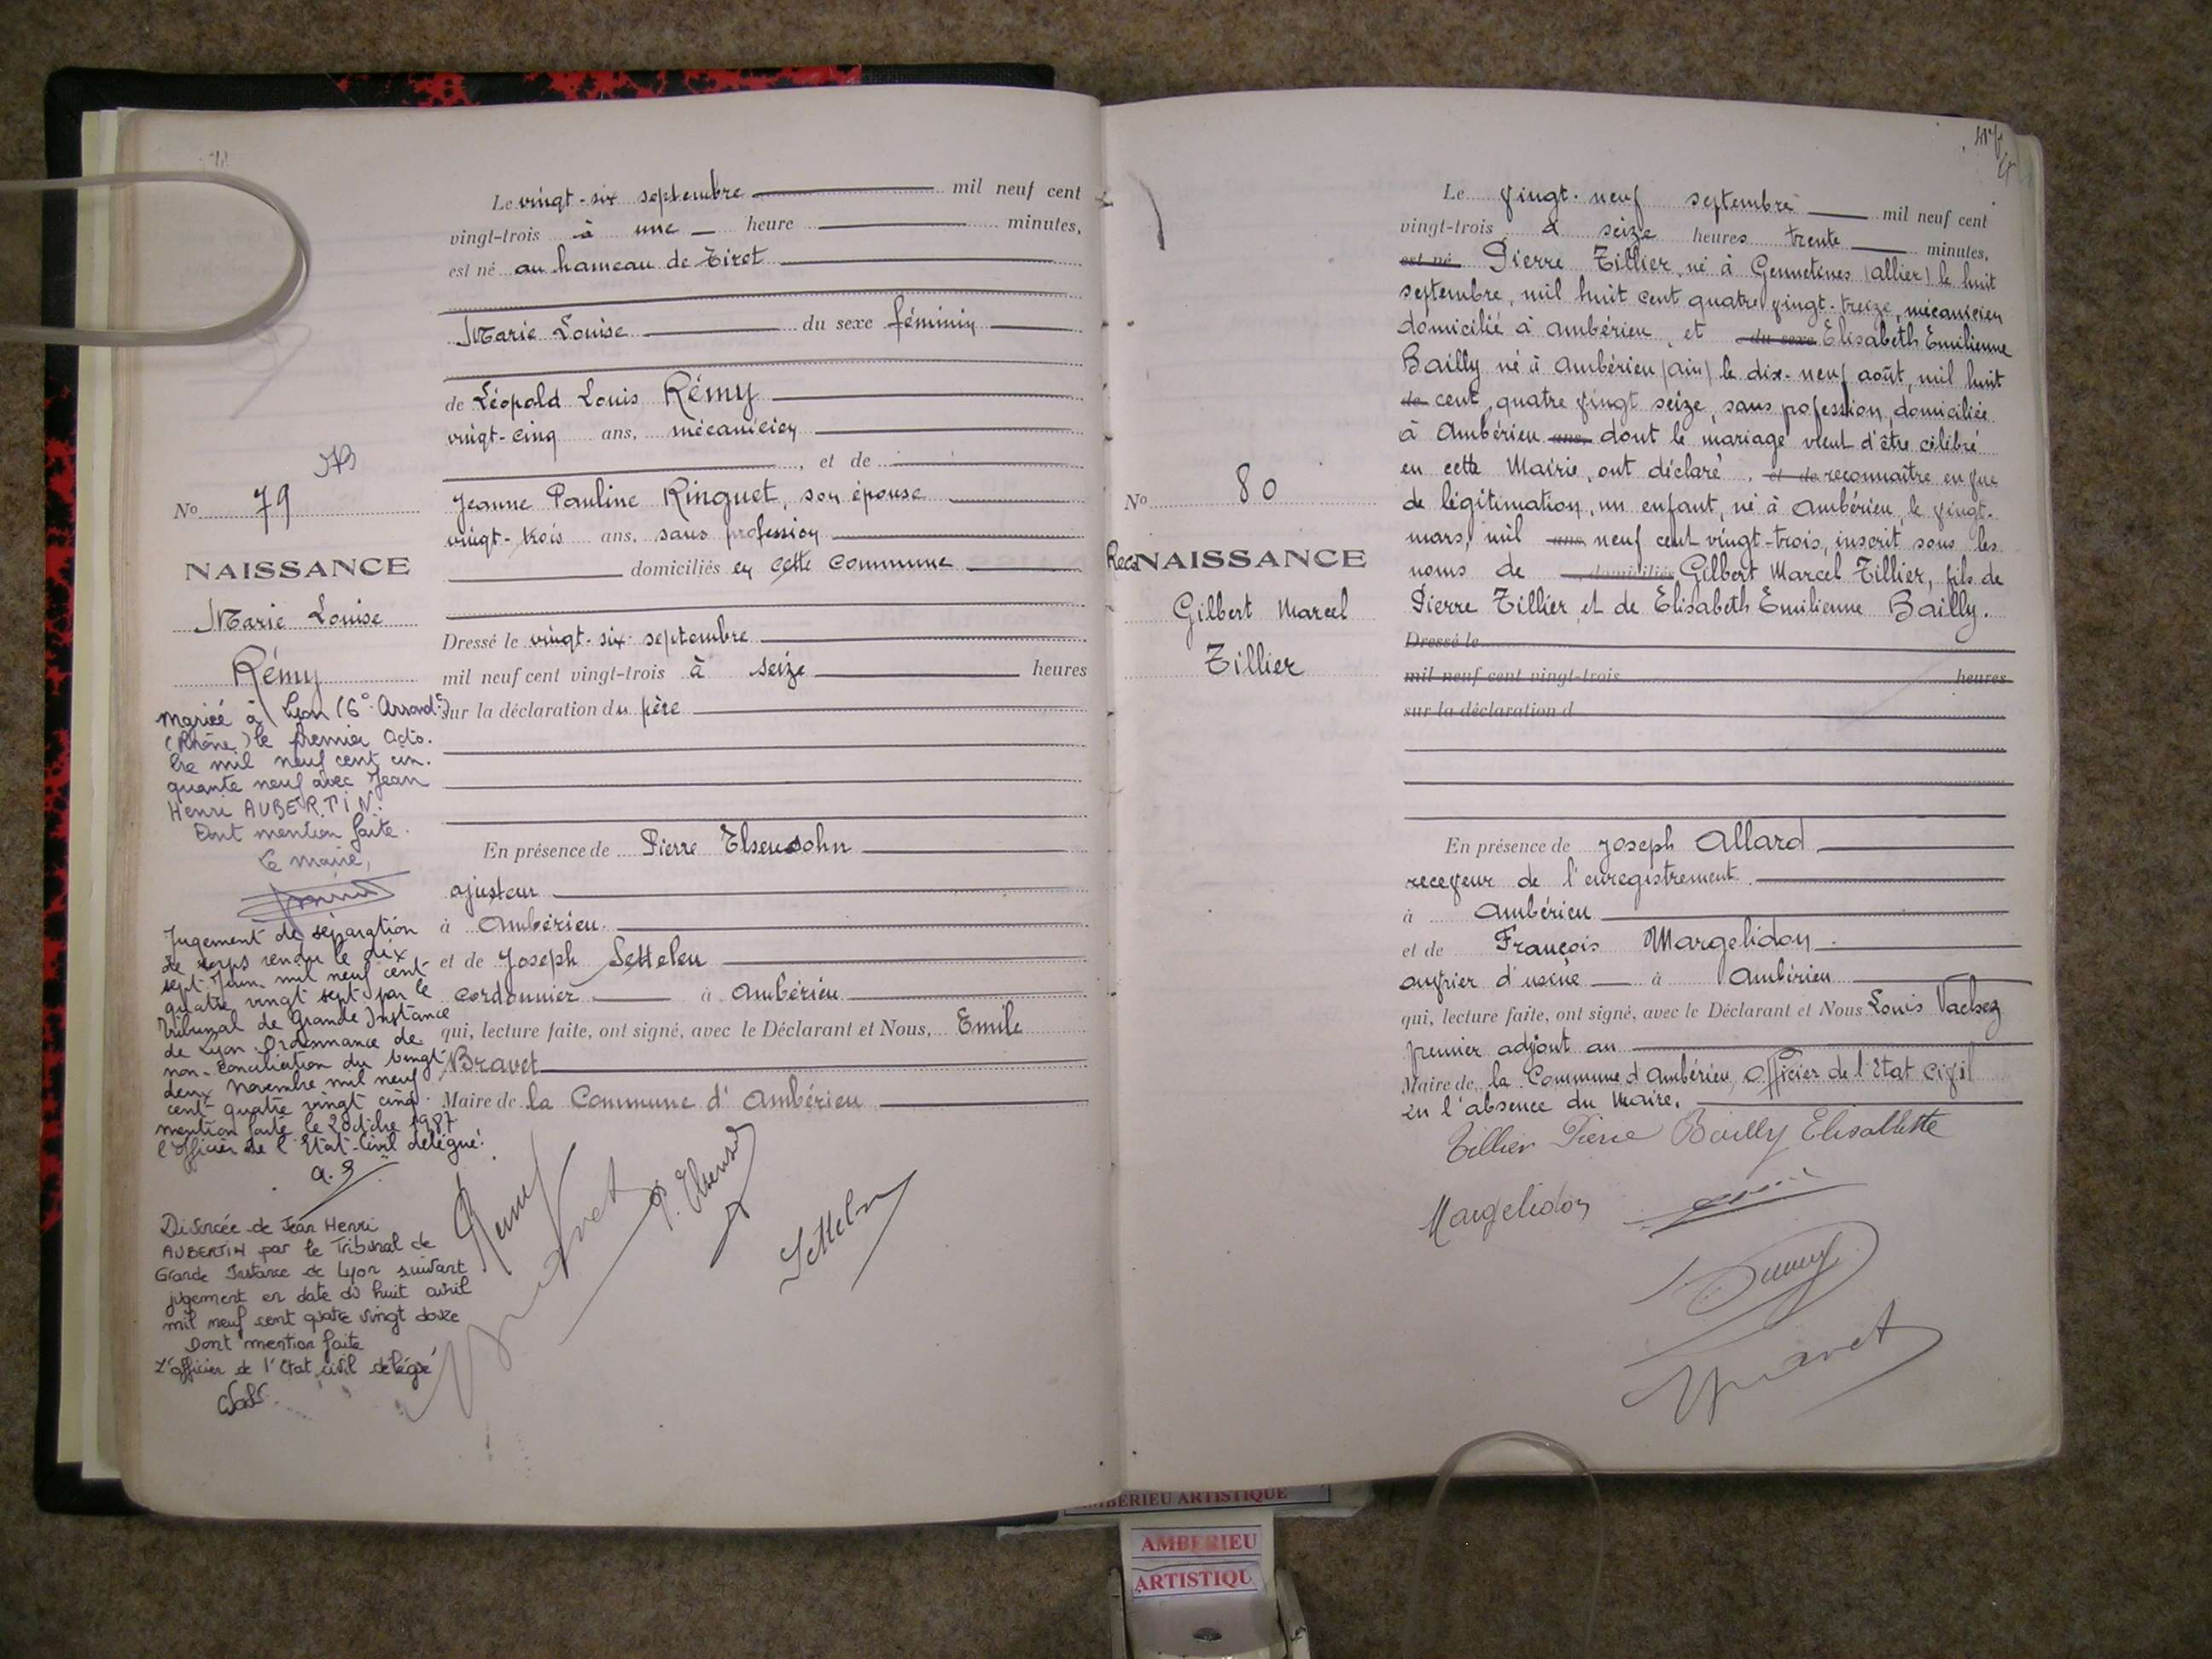 Le vingt-six septembre mil neuf cent
vingt-trois à une heure minutes,
est né au hameau de Tiret
Marie Louise du sexe féminin
de Léopold Louis Rémy
vingt-cinq ans, mécanicien
, et de
Jeanne Pauline Ringuet, son épouse
vingt-trois ans, sans profession
domiciliés en cette commune
Dressé le vingt-six septembre
mil neuf cent vingt-trois à seize heures
sur la déclaration du père
En présence de Pierre Elsensohn
ajusteur
à Ambérieu
et de Joseph Settelen
cordonnier à Ambérieu
qui, lecture faite, ont signé, avec le Déclarant et Nous, Emile
Bravet
Maire de la Commune d'Ambérieu
Remy Bravet P. Elsensohn
Settelen
No 79
NAISSANCE
Marie Louise
Rémy
Mariée à Lyon (6° Arrond.t)
(Rhône) le premier Octo.
bre mil neuf cent cin.
quante neuf avec Jean
Henri AUBERTIN.
Dont mention faite.
Le maire,
Jugement de séparation
de corps rendu le dix
sept Juin mil neuf cent
quatre vingt sept par le
Tribunal de Grande Instance
de Lyon. Ordonnance de
non-conciliation du vingt
deux Novembre mil neuf
cent quatre vingt cinq.
mention faite le 2 octobre 1987
l'Officier de l'Etat-Civil délégué.
Divorcée de Jean Henri
AUBERTIN par le Tribunal de
Grande Instance de Lyon suivant
jugement en date du huit avril
mil neuf cent quatre vingt douze
Dont mention faite
L'officier de l'état civil délégué
No 80
Reco NAISSANCE
Gilbert Marcel
Tillier
Le vingt-neuf septembre mil neuf cent
vingt-trois à seize heures trente minutes,
est né Pierre Tillier, né à Gennetines (Allier) le huit
septembre, mil huit cent quatre vingt-treize, mécanicien
domicilié à Ambérieu, et du sexe Elisabeth Emilienne
Bailly né à Ambérieu (Ain) le dix-neuf août, mil huit
de cent quatre vingt seize, sans pofession, domiciliée
à Ambérieu ans, dont le mariage vient d'être célébré
en cette Mairie, ont déclaré, et de reconnaître en vue
de légitimation, un enfant, né à Ambérieu, le vingt-
mars, mil ans, neuf cent vingt-trois, inscrit sous les
noms de domiciliés Gilbert Marcel Tillier, fils de
Pierre Tillier, et de Elisabeth Emilienne Bailly.
Dressé le
mil neuf cent vingt-trois heures
sur la déclaration d
En présence de Joseph Allard
receveur de l'enregistrement
à Ambérieu
et de François Margelidon
ouvrier d'usine à Ambérieu
qui, lecture faite, ont signé, avec le Déclarant et Nous Louis Vachez
premier adjoint au
Maire de la Commune d'Ambérieu, Officier de l'Etat civil
en l'absence du Maire,
Tillier Pierre Bailly Elisabette
Margelidon
Bravet
AMBERIEU ARTISTIQUE
AMBERIEU
ARTISTIQU